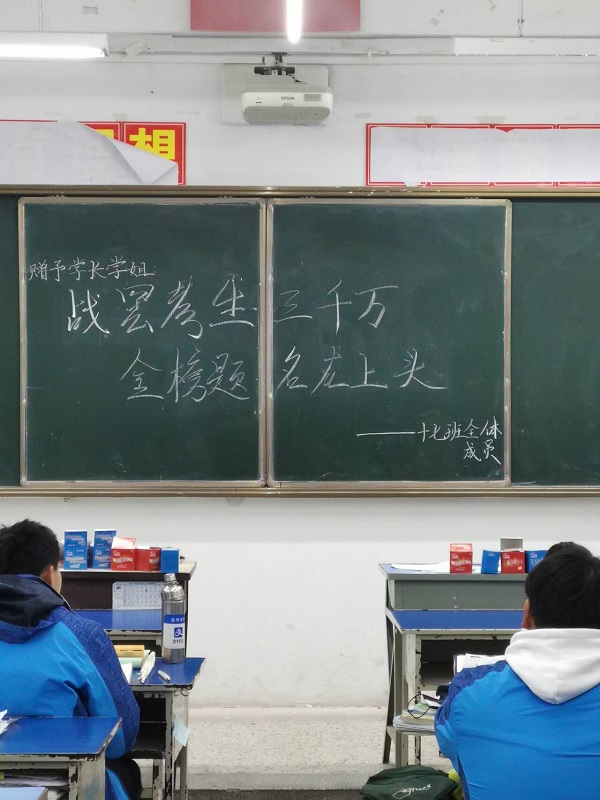 EPSON
想
赠予学长学姐
战罢考生三千万
金榜题名在上头
——十七班全体
成员